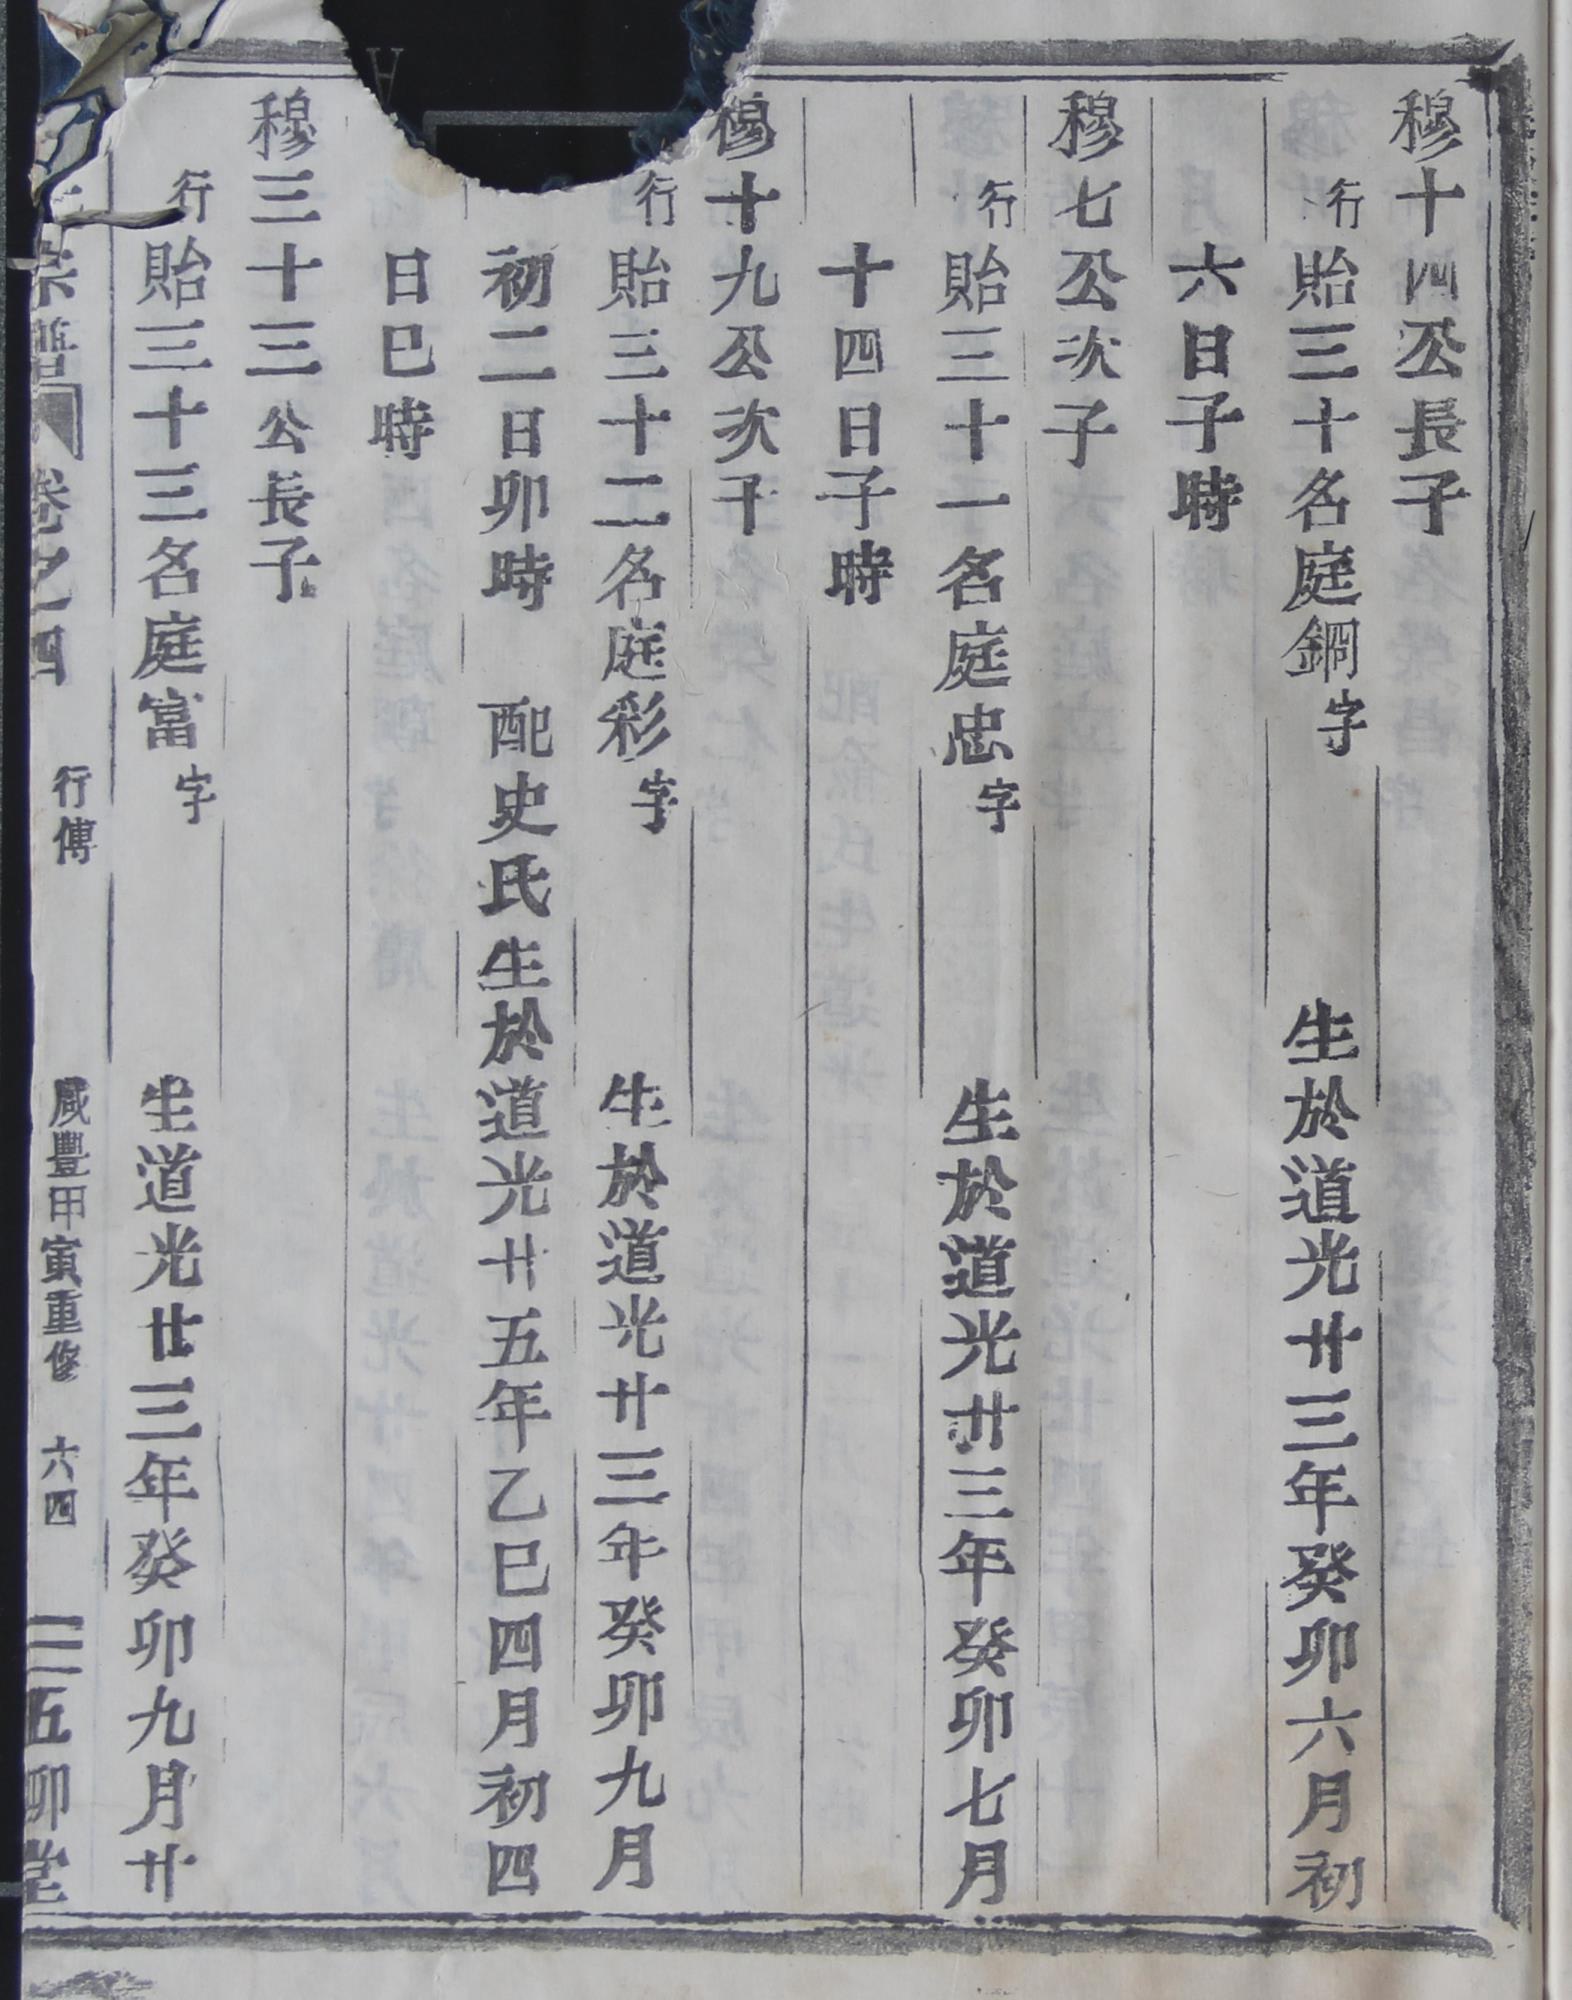 穆十四公長子
行貽三十名庭鋼字 生於道光廿三年癸卯六月初
六日子時
穆七公次子
行貽三十一名庭忠字 生於道光廿三年癸卯七月
十四日子時
穆十九公次子
行貽三十二名庭彩字 生於道光廿三年癸卯九月
初二日卯時 配史氏生於道光廿五年乙巳四月初四
日巳時
穆三十三公長子
行貽三十三名庭富字 生道光廿三年癸卯九月廿
宗譜 卷之四 行傳 咸豐甲寅重修 六四 五柳堂